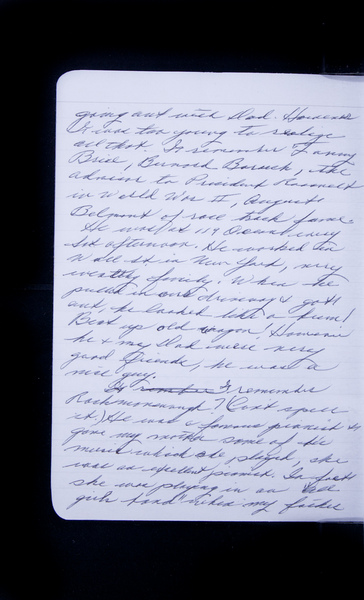 going out with Dad. However
I was too young to realize
all that. I remember Fanny
Brice, Bernard Baruch, the
advisor to President Roosevelt
in World War II, August
Belmont of race track fame.
He was at 119 Ocean every
Sat afternoon. He worked on
Wall st in New York, very
wealthy family. When he
pulled in our driveway & got
out, he looked like a bum!
Beat up old wagon. However
he & my Dad were very
good friends, he was a
nice guy.
I remember
Rachmononaugh? (Cant spell
it.) He was a famous pianist &
gave my mother some of the
music which he played, she
was an excellent pianist. In fact
she was playing in an "all
girls band" when my father